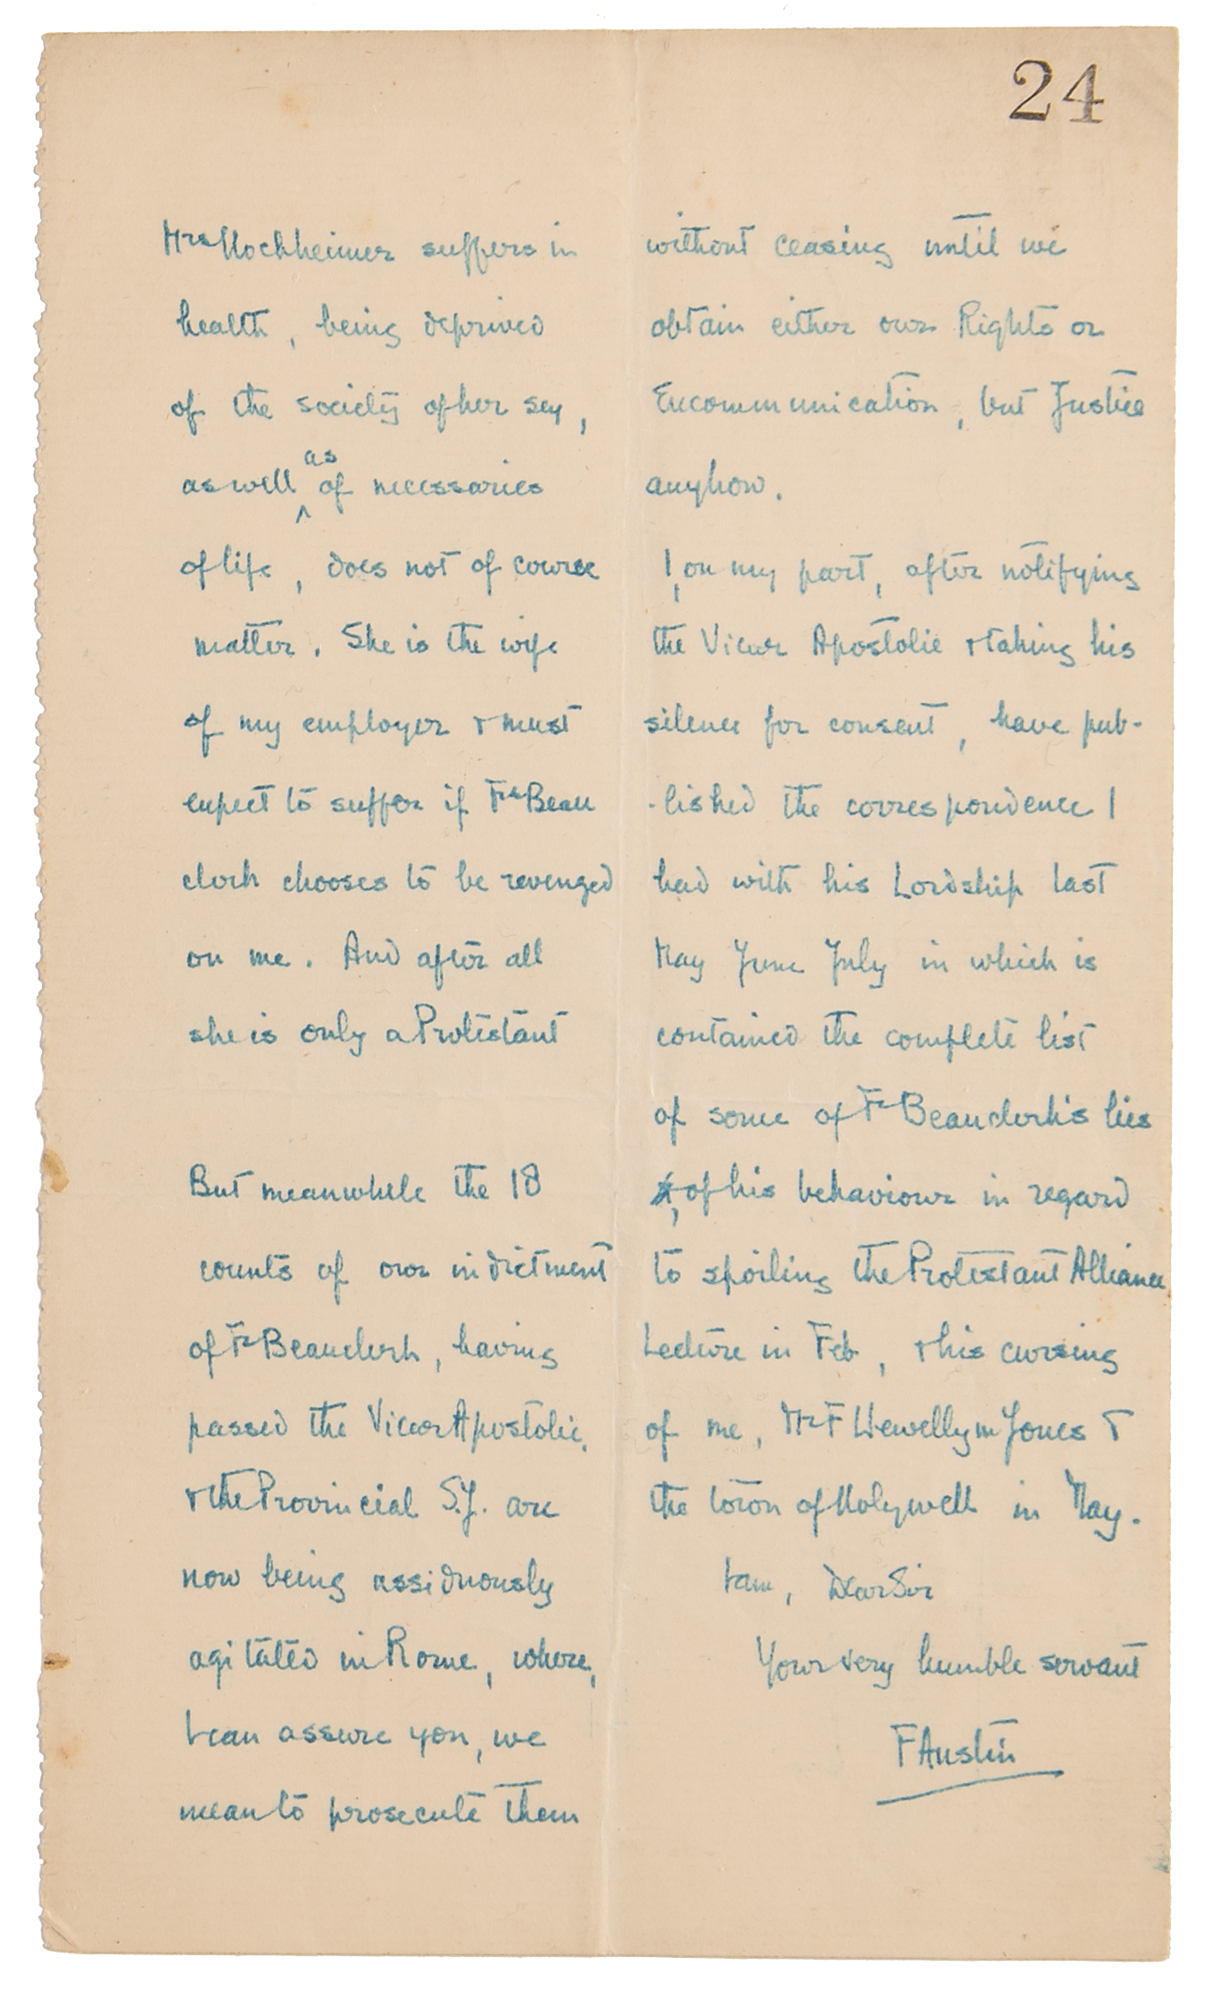 24
Mrs Hochheimer suffers in
health, being deprived
of the society of her sex,
as well as of necessaries
of life, does not of course
matter. She is the wife
of my employer & must
expect to suffer if Fr Beau
clerk chooses to be revenged
on me. And after all
she is only a Protestant
But meanwhile the 18
counts of our indictment
of Fr Beauclerk, having
passed the Vicar Apostolic,
& the Provincial S.J. are
now being assiduously
agitated in Rome, where,
I can assure you, we
mean to prosecute them
without ceasing until we
obtain either our Rights or
Excommunication, but Justice
anyhow.
I, on my part, after notifying
the Vicar Apostolic & taking his
silence for consent, have pub-
-lished the correspondence I
had with his Lordship last
May June July in which is
contained the complete list
of some of Fr Beauclerk's lies
, of his behaviour in regard
to spoiling the Protestant Alliance
Lecture in Feb, & his cursing
of me, Mr F Llewellyn Jones &
the town of Holywell in May.
I am, Dear Sir
Your very humble servant
F Austin